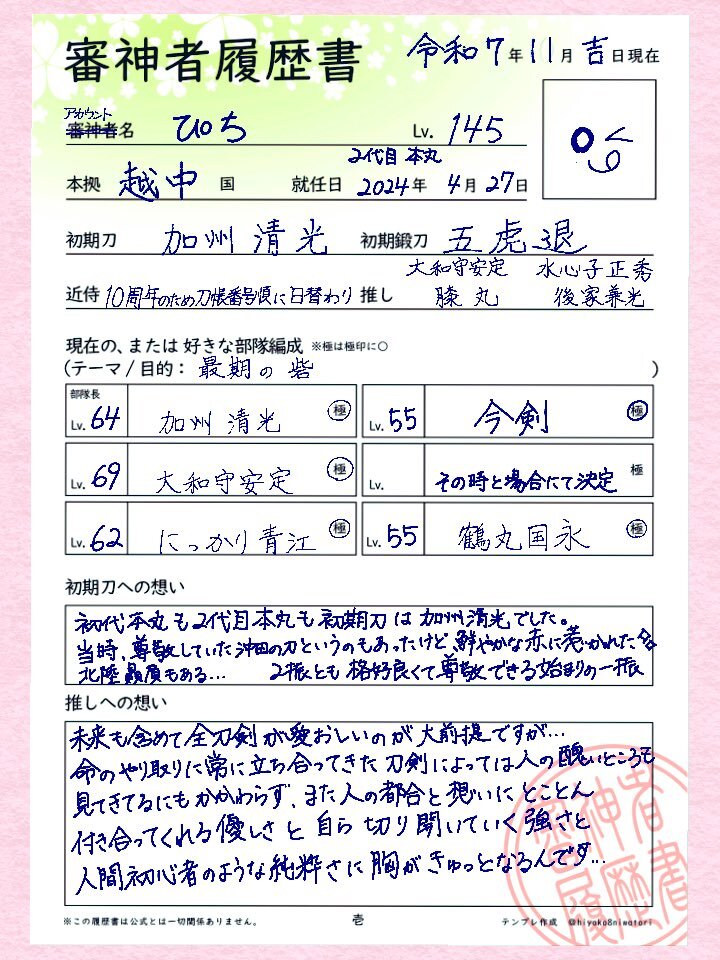 審神者履歴書
令和7年11月吉日現在
アカウント
審神者名 ぴち Lv. 145
2代目 本丸
本拠 越中 国 就任日 2024年 4月 27日
初期刀 加州清光 初期鍛刀 五虎退
大和守安定 水心子正秀
近侍 10周年のため刀帳番号順に日替わり 推し 膝丸 後家兼光
現在の、または 好きな部隊編成 ※極は極印に○
(テーマ / 目的: 最期の砦 )
部隊長
Lv. 64 加州清光 極 Lv. 55 今剣 極
Lv. 69 大和守安定 極 Lv. その時と場合にて決定 極
Lv. 62 にっかり青江 極 Lv. 55 鶴丸国永 極
初期刀への想い
初代本丸も2代目本丸も初期刀は加州清光でした。
当時、尊敬していた沖田の刀というのもあったけど、鮮やかな赤に惹かれた
北陸贔屓もある… 2振とも格好良くて尊敬できる始まりの一振
推しへの想い
未来も含めて全刀剣が愛おしいのが大前提ですが…
命のやり取りに常に立ち合ってきた刀剣によっては人の醜いところも
見てきてるにもかかわらず、また人の都合と想いにとことん
付き合ってくれる優しさと自ら切り開いていく強さと
人間初心者のような純粋さに胸がきゅっとなるんです…
審神者履歴書
※この履歴書は公式とは一切関係ありません。 壱 テンプレ作成 @hiyoko8niwatori